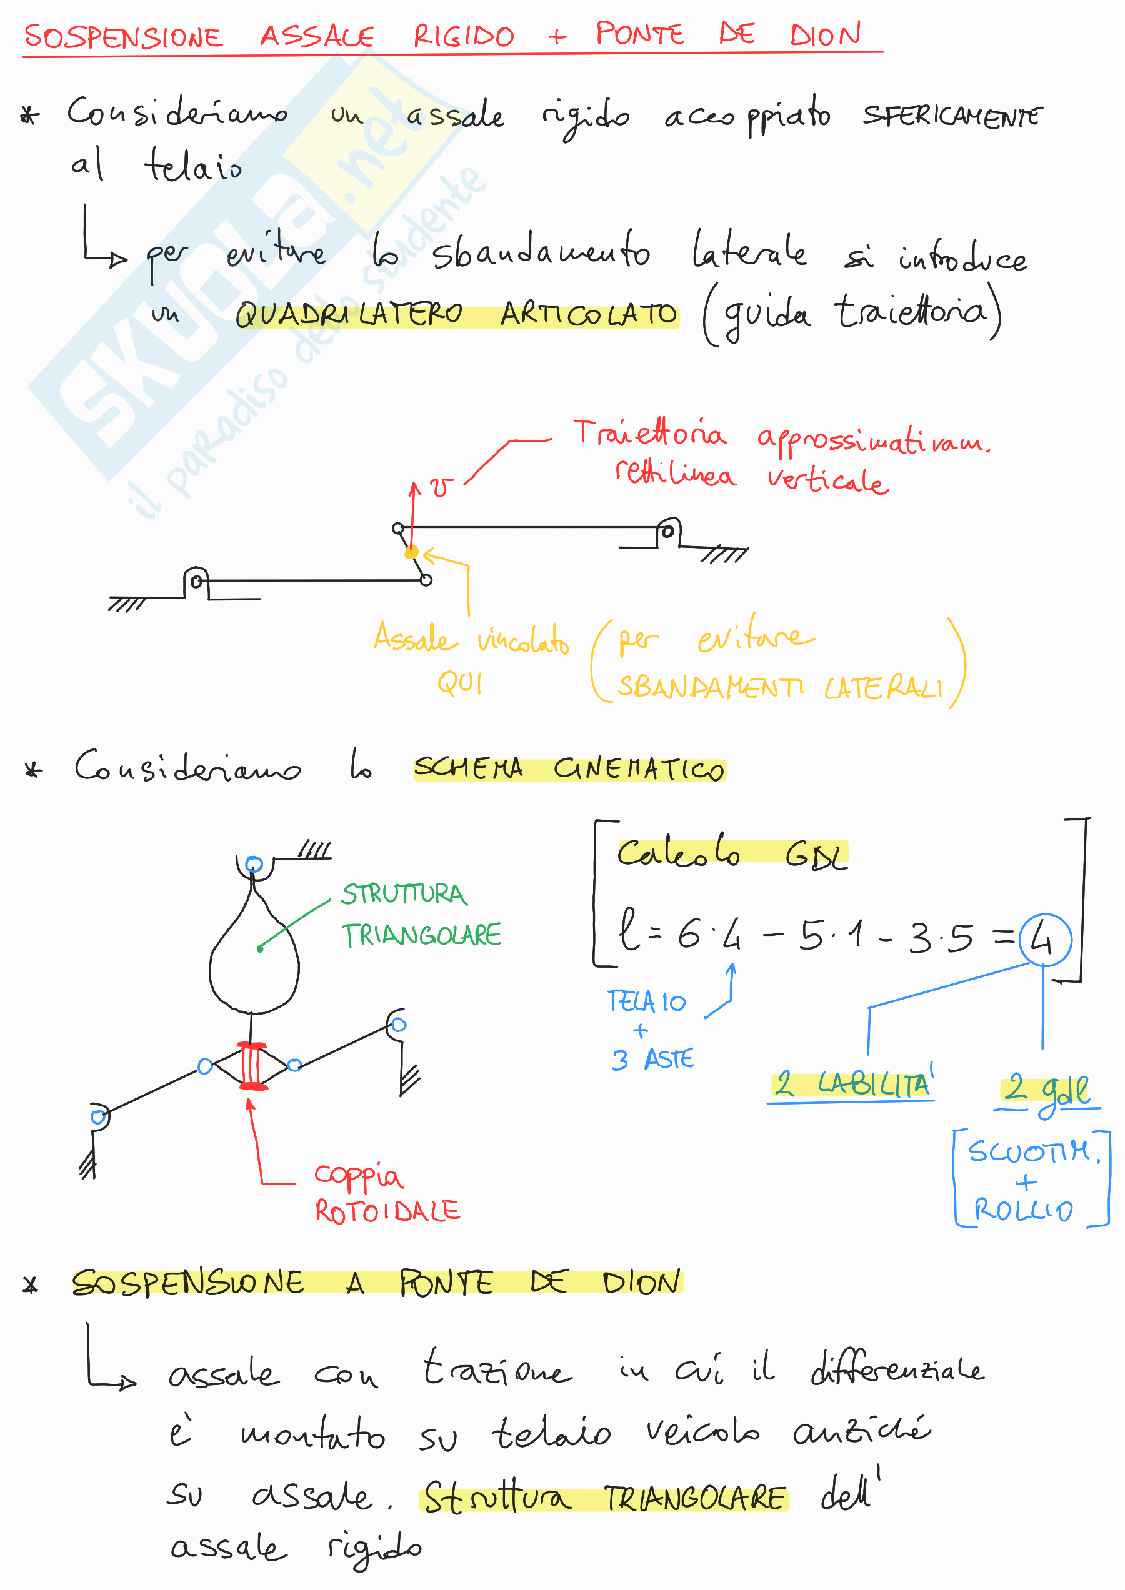 SOSPENSIONE ASSALE RIGIDO + PONTE DE DION
* Consideriamo un assale rigido accoppiato SFERICAMENTE
al telaio
per evitare lo sbandamento laterale si introduce
un QUADRILATERO ARTICOLATO (guida traiettoria)
SKUOLA.net
il paradiso dello studente
Traiettoria approssimativam.
rettilinea verticale
v
Assale vincolato (per evitare
QUI SBANDAMENTI LATERALI)
* Consideriamo lo SCHEMA CINEMATICO
Calcolo GDL
l = 6·4 - 5·1 - 3·5 = 4
STRUTTURA
TRIANGOLARE
TELAIO
+
3 ASTE
2 LABILITA'
2 gdl
[SCUOTIM.
+
ROLLIO]
COPPIA
ROTOIDALE
* SOSPENSIONE A PONTE DE DION
assale con trazione in cui il differenziale
è montato su telaio veicolo anziché
su assale. Struttura TRIANGOLARE dell'
assale rigido